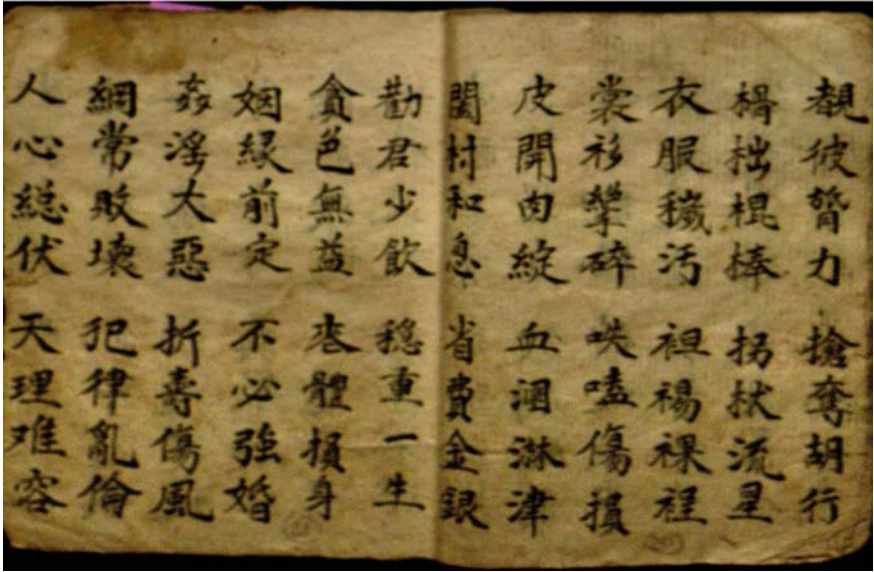 覩彼膂力 搶奪胡行
榾柮棍棒 拐杖流星
衣服穢污 袒裼裸裎
裳衫碎 嗑傷損
皮開肉綻 血淋津
村和息 省費金銀
勸君少飲 穩重一生
貪色無益 丧體損身
姻緣前定 不必強婚
姦淫大惡 折壽傷風
綱常敗壞 犯律亂倫
人心総伏 天理难容